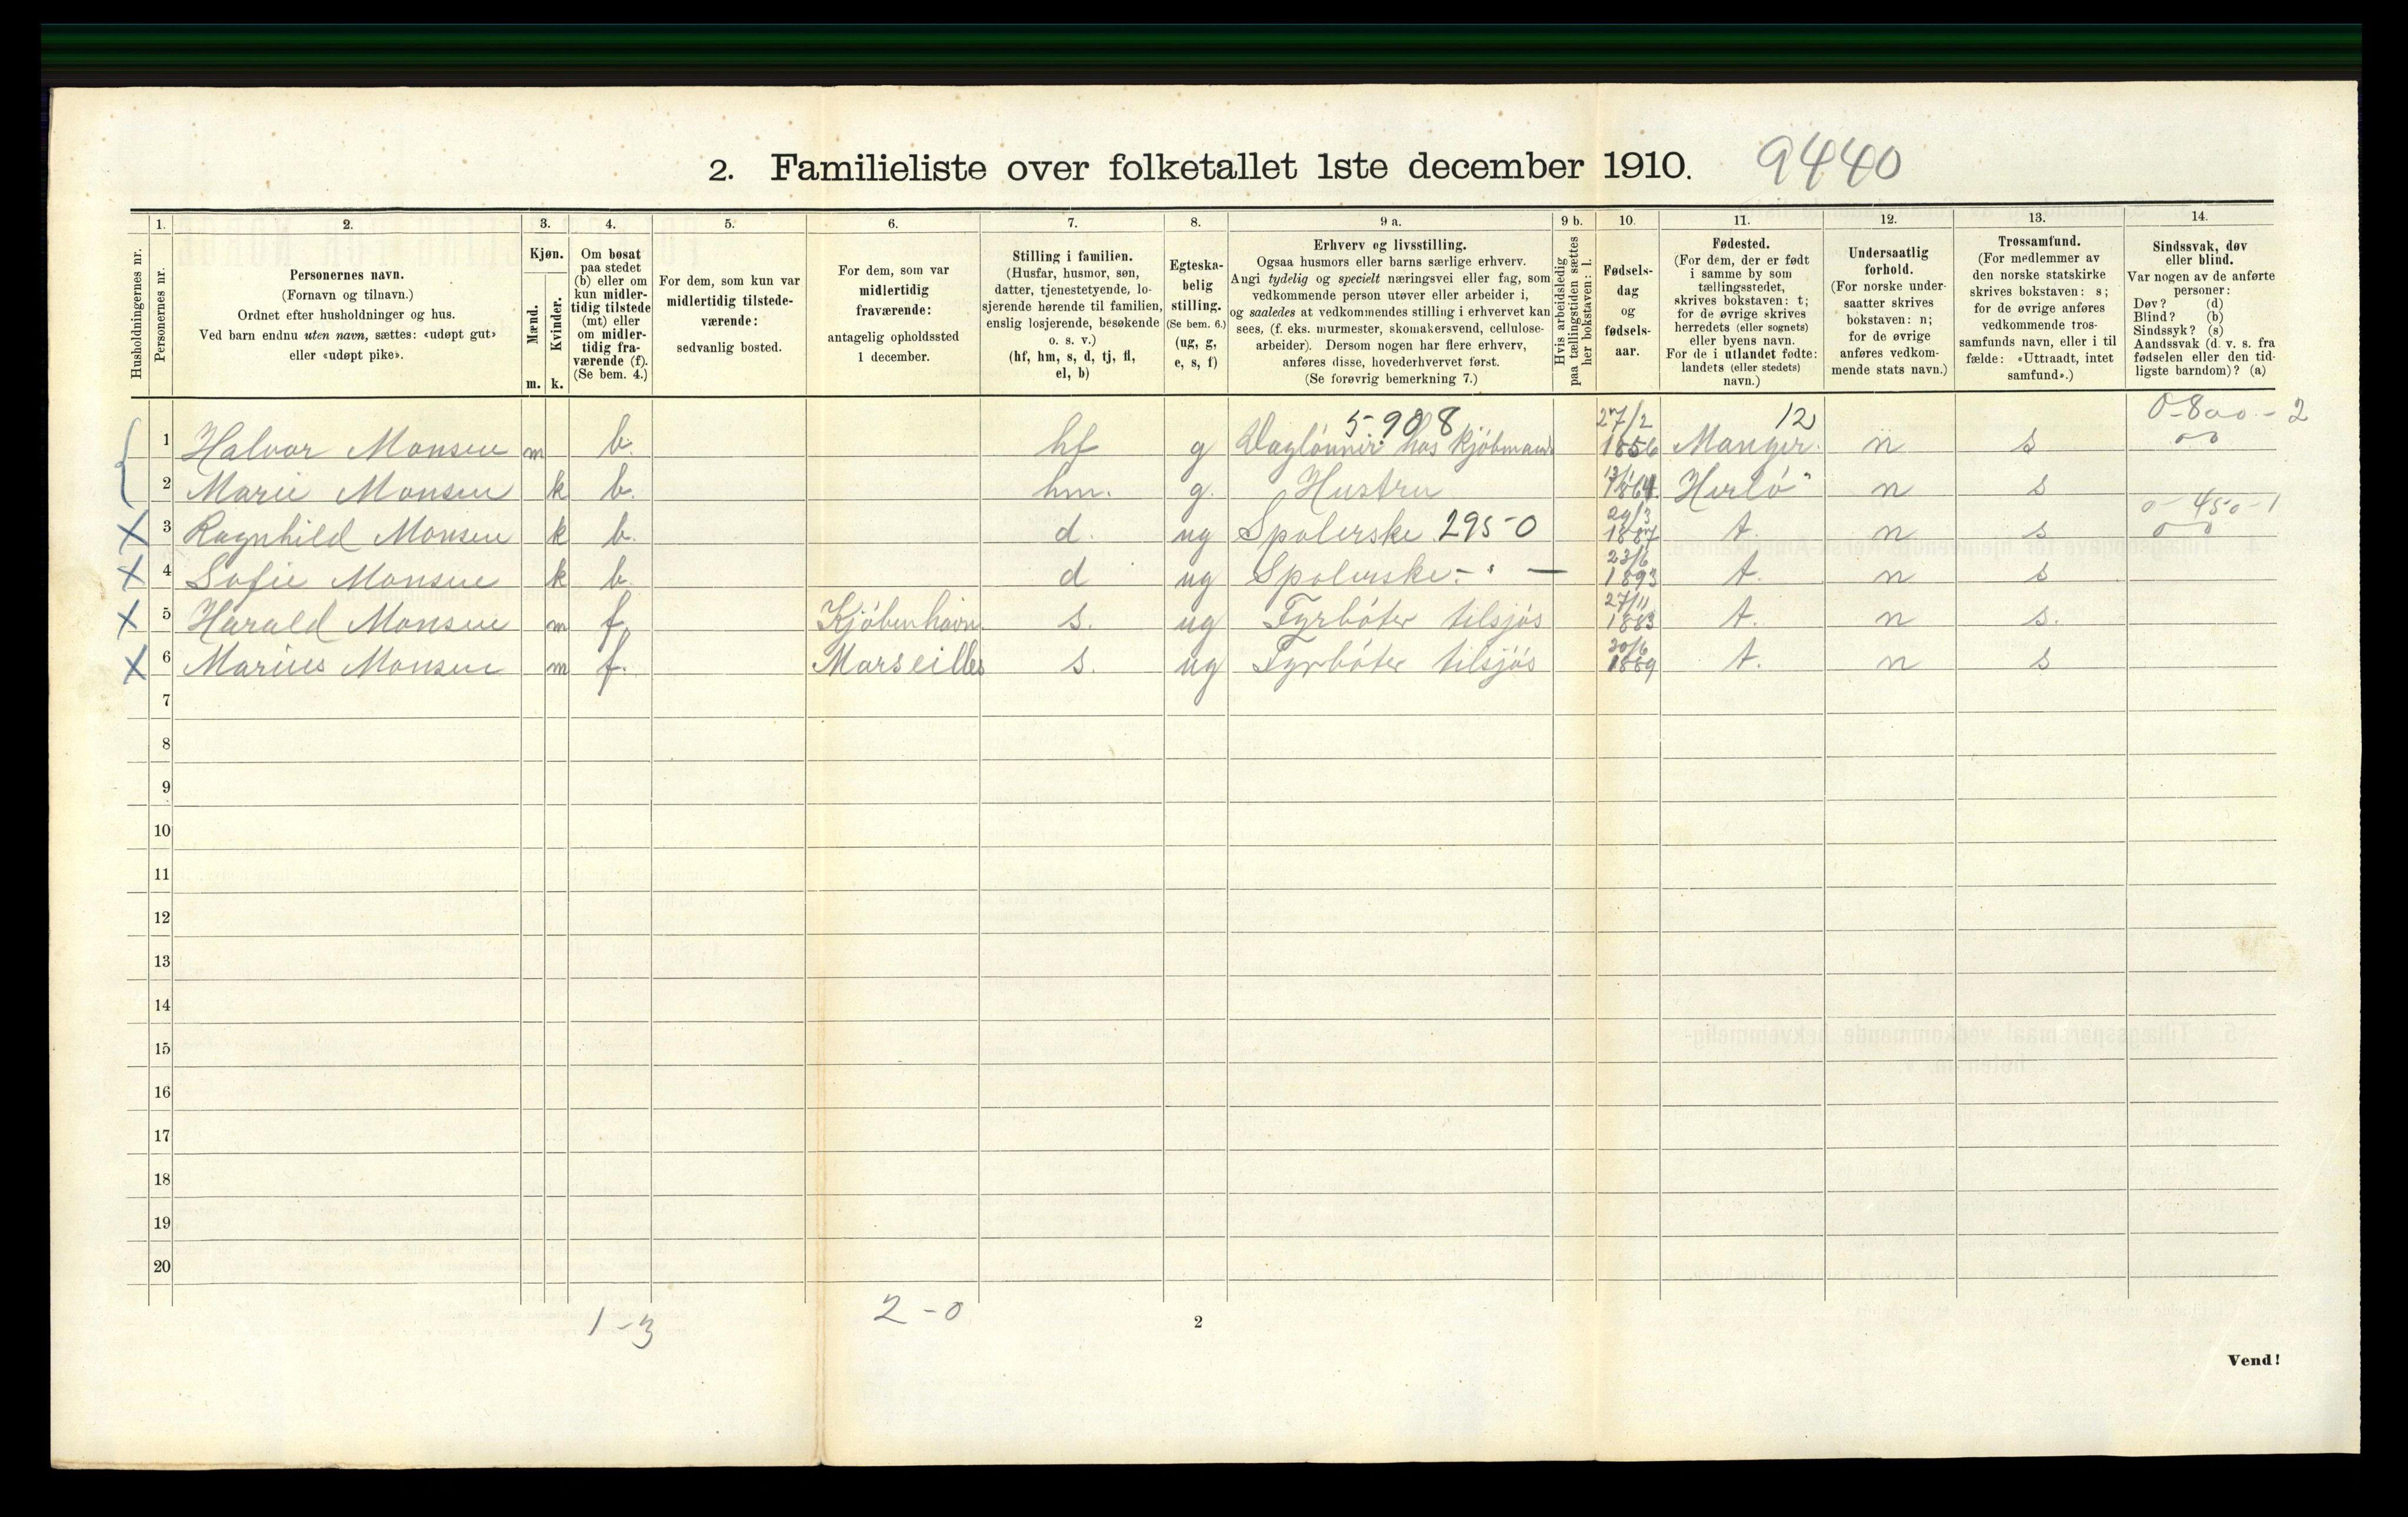 2. Familieliste over folketallet 1ste december 1910. 9440
Husholdningernes nr.
1.
Personernes nr.
2.
Personernes navn.
(Fornavn og tilnavn.)
Ordnet efter husholdninger og hus.
Ved barn endnu uten navn, sættes: «udøpt gut»
eller «udøpt pike».
3.
Kjøn.
Mænd.
Kvinder.
m. k.
4.
Om bosat
paa stedet
(b) eller om
kun midler-
tidig tilstede
(mt) eller
om midler-
tidig fra-
værende (f).
(Se bem. 4.)
5.
For dem, som kun var
midlertidig tilstede-
værende:
sedvanlig bosted.
6.
For dem, som var
midlertidig
fraværende:
antagelig opholdssted
1 december.
7.
Stilling i familien.
(Husfar, husmor, søn,
datter, tjenestetyende, lo-
sjerende hørende til familien,
enslig losjerende, besøkende
o. s. v.)
(hf, hm, s, d, tj, fl,
el, b)
8.
Egteska-
belig
stilling.
(Se bem. 6.)
(ug, g,
e, s, f)
9 a.
Erhverv og livsstilling.
Ogsaa husmors eller barns særlige erhverv.
Angi tydelig og specielt næringsvei eller fag, som
vedkommende person utøver eller arbeider i,
og saaledes at vedkommendes stilling i erhvervet kan
sees, (f. eks. murmester, skomakersvend, cellulose-
arbeider). Dersom nogen har flere erhverv,
anføres disse, hovederhvervet først.
(Se forøvrig bemerkning 7.)
9 b.
Hvis arbeidsledig
paa tællingstiden sættes
her bokstaven: l.
10.
Fødsels-
dag
og
fødsels-
aar.
11.
Fødested.
(For dem, der er født
i samme by som
tællingsstedet,
skrives bokstaven: t;
for de øvrige skrives
herredets (eller sognets)
eller byens navn.
For de i utlandet fødte:
landets (eller stedets)
navn.)
12.
Undersaatlig
forhold.
(For norske under-
saatter skrives
bokstaven: n;
for de øvrige
anføres vedkom-
mende stats navn.)
13.
Trossamfund.
(For medlemmer av
den norske statskirke
skrives bokstaven: s;
for de øvrige anføres
vedkommende tros-
samfunds navn, eller i til
fælde: «Uttraadt, intet
samfund».)
14.
Sindssvak, døv
eller blind.
Var nogen av de anførte
personer:
Døv? (d)
Blind? (b)
Sindssyk? (s)
Aandssvak (d. v. s. fra
fødselen eller den tid-
ligste barndom)? (a)
5-908 27/2 12 0-800-2
1 Halvor Monsen m b. hf g Daglönner hos Kjöbmand 1856 Manger. n s 00
2 Marie Monsen k b. hm. g. Hustru 1864 Herlö n s
29/3 0-450-1
X 3 Ragnhild Monsen k b. d. ug Spolerske 295-0 1887 t. n s 00
23/6
X 4 Sofie Monsen k b. d ug Spolerske - " - 1893 t. n s
27/11
X 5 Harald Monsen m f. Kjöbenhavn s. ug Fyrböter tilsjós 1883 t. n s.
30/6
X 6 Marius Monsen m f. Marseilles s. ug Fyrböter tilsjós 1889 t. n s
7
8
9
10
11
12
13
14
15
16
17
18
19
20
1-3 2-0
2
Vend!